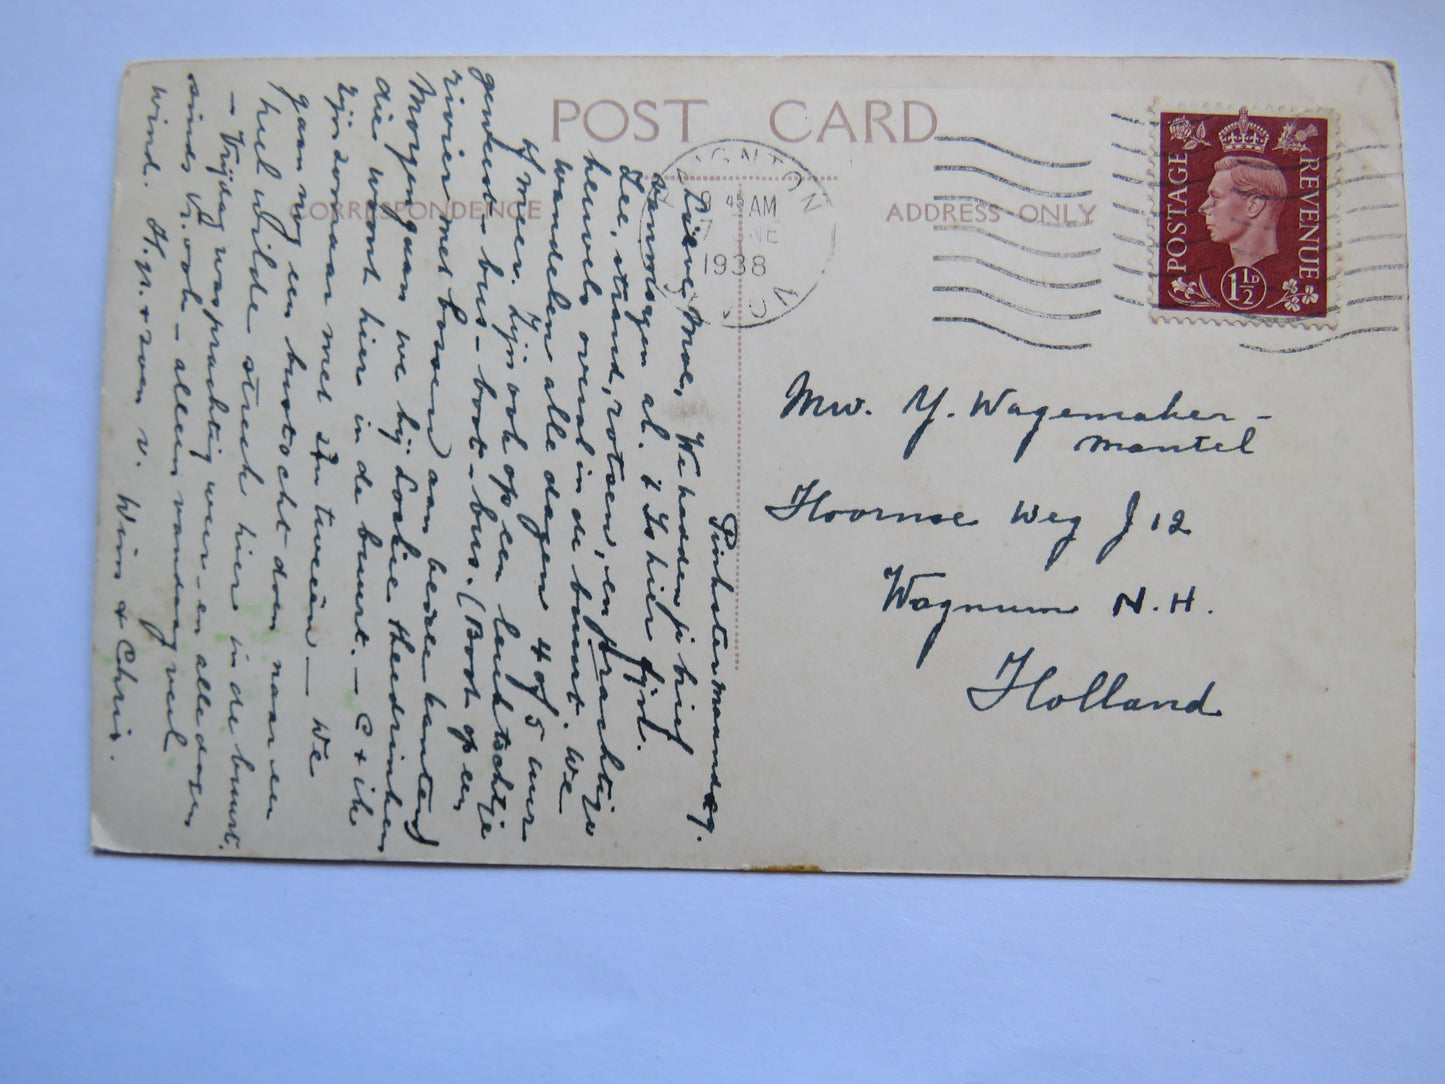 POST CARD
CORRESPONDENCE
ADDRESS ONLY
PAIGNTON
9 45 AM
7 JNE
1938
DEVON
POSTAGE
REVENUE
1½D
Pinkstermaandag.
Lieve Moe, We hadden je brief
vanmorgen al. 't Is hier fijn.
Zee, strand, rotsen, en prachtige
heuvels overal in de buurt. We
wandelen alle dagen 4 of 5 uur
of meer. Zijn ook op een leuk tochtje
geweest bus-boot-bus. (Boot op een
rivier met bossen aan beide kanten)
Morgen gaan we bij Loekie theedrinken
die woont hier in de buurt. - C & ik
zijn zoowaar met z'n tweeën - We
gaan nog een bustocht doen naar een
heel wilde streek hier in de buurt.
- Vrijdag was prachtig weer - en alle dagen
sinds V. ook - alleen vandaag veel
wind. H. gr. & zoen v. Wim & Chris.
Mw. Y. Wagemaker-
Mantel
Hoornse Weg J 12
Wognum N.H.
Holland